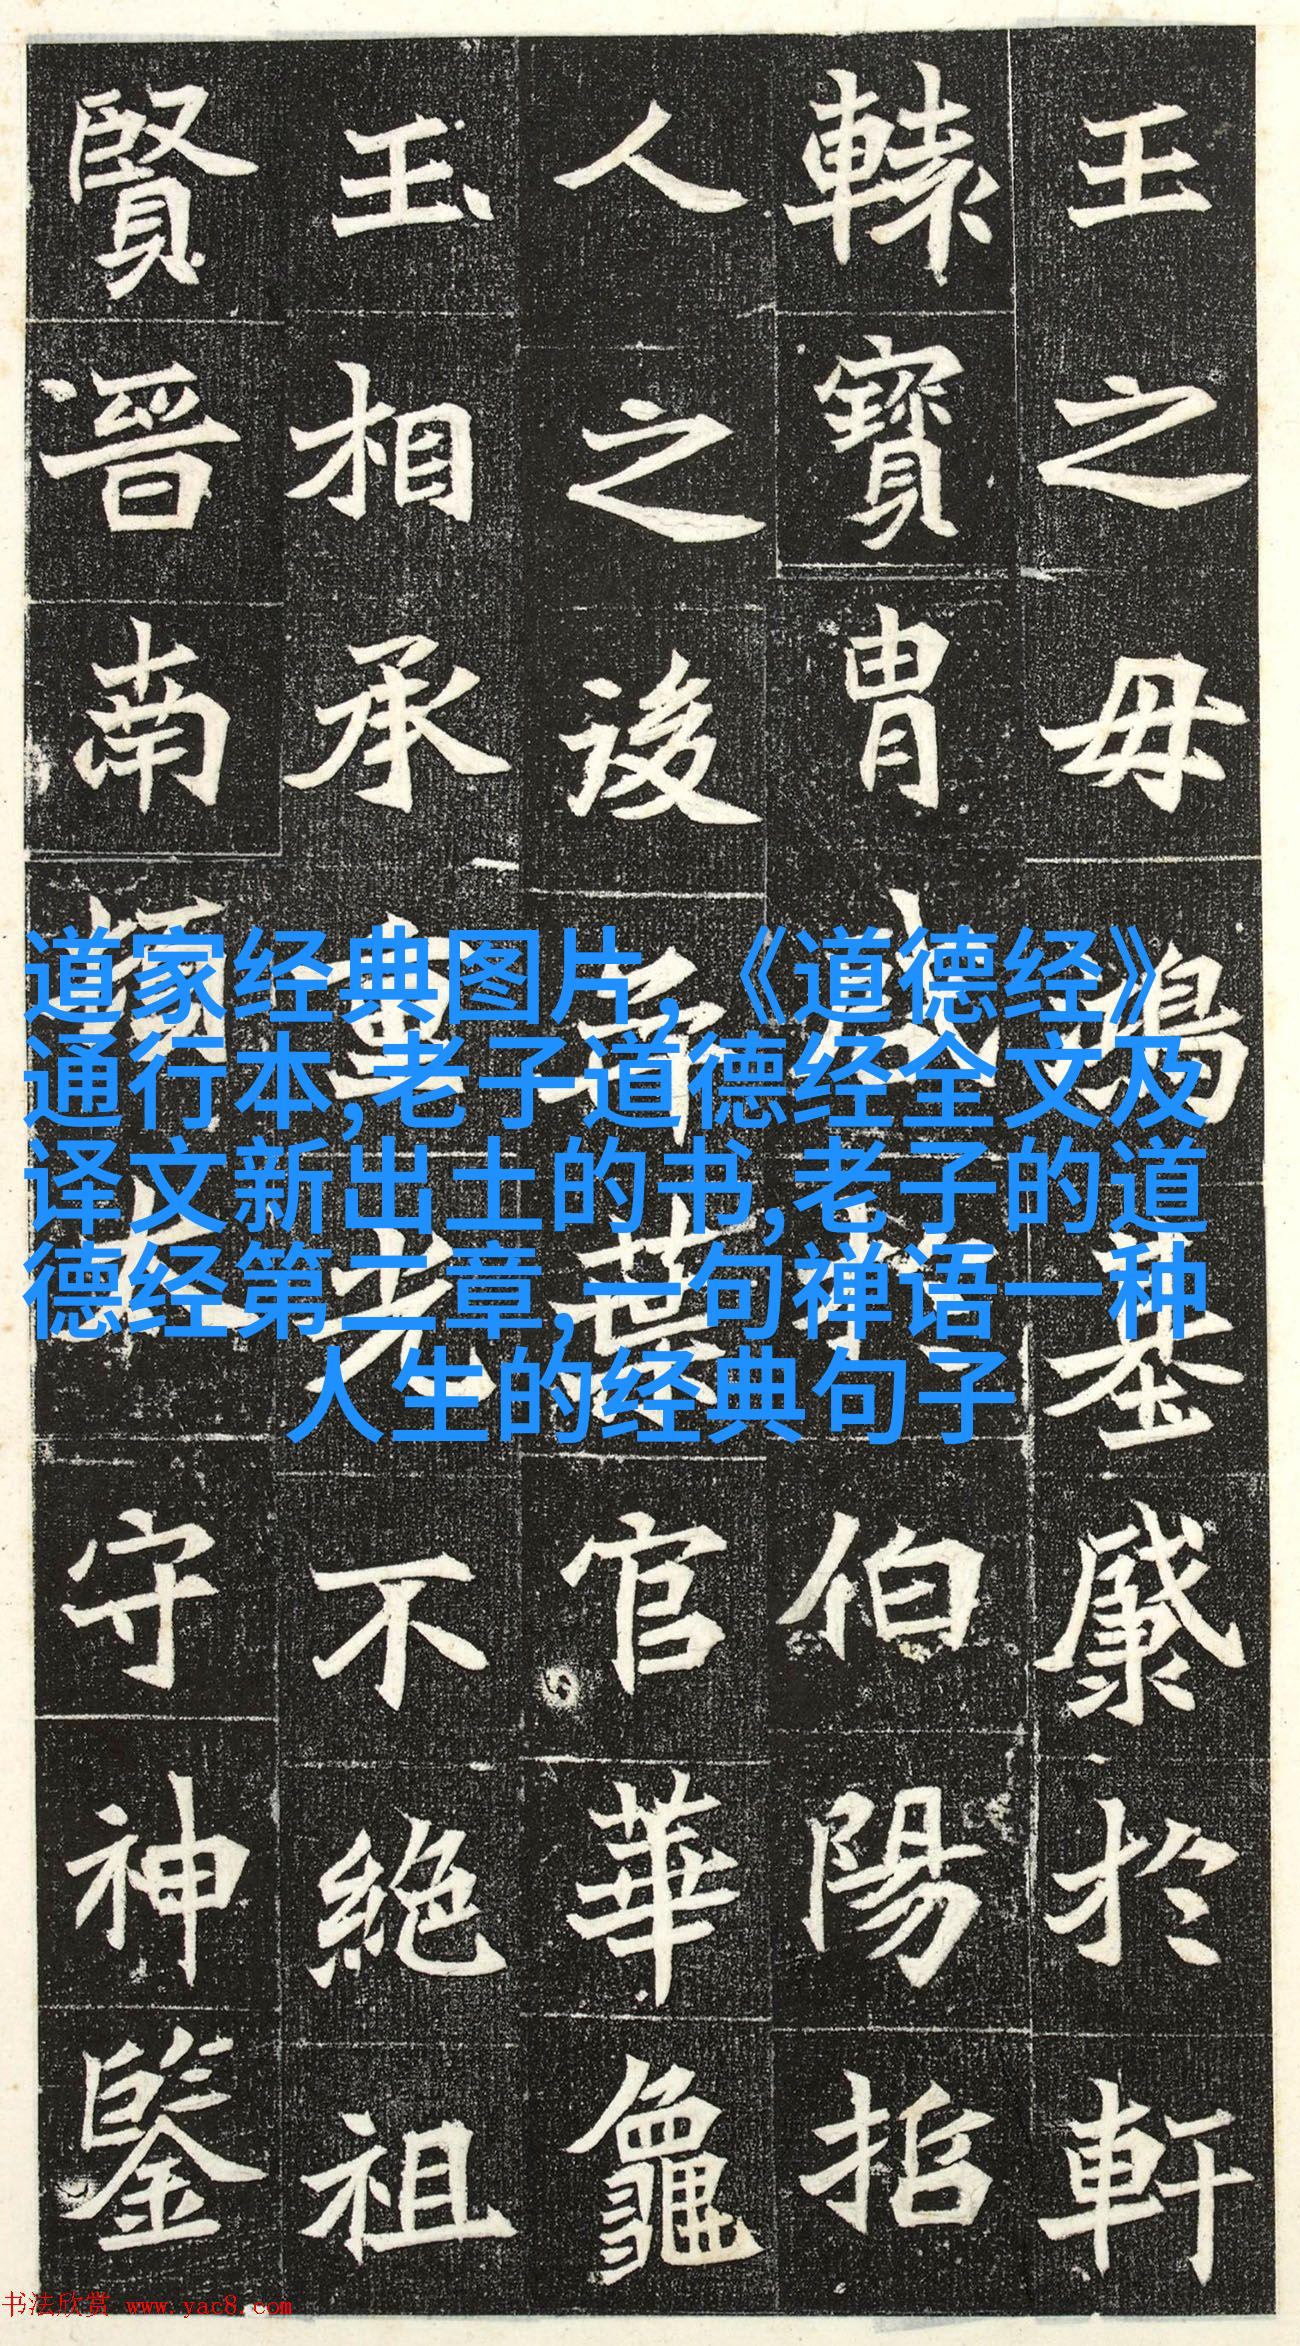 王之毋鴻基於軒
轅寶胄伯陽
人之後葉官華龜
玉相承重光不絕祖
賢晉南守神鑒
道家经典图片,《道德经》
通行本,老子道德经全文及
译文新出土的书,老子的道
德经第二章,一句禅语一种
人生的经典句子
书法欣赏 www.yac8.com